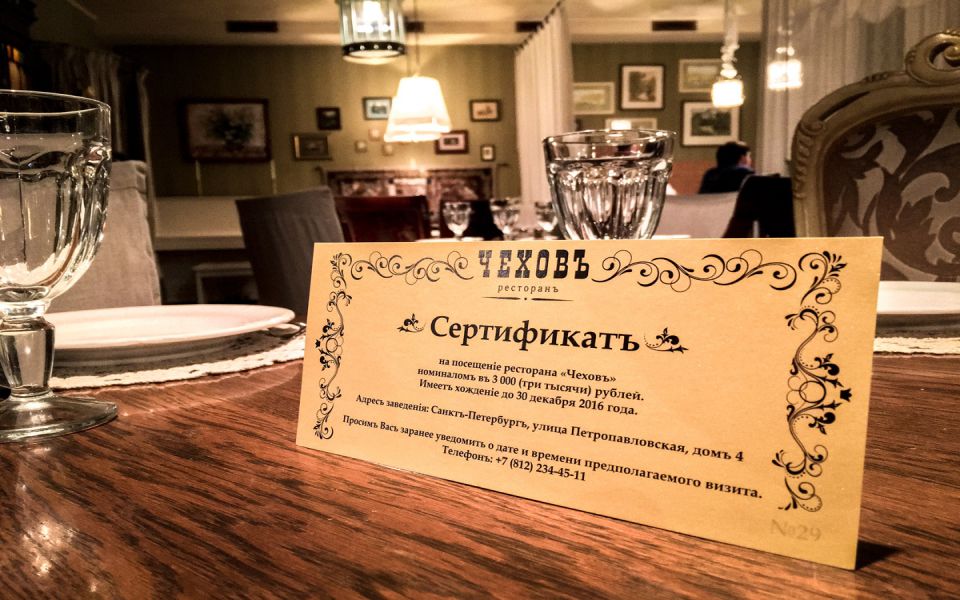 ЧЕХОВЪ
ресторанъ
Сертификатъ
на посещенiе ресторана «Чеховъ»
номиналомъ въ 3 000 (три тысячи) рублей.
Имеетъ хожденiе до 30 декабря 2016 года.
Адресъ заведенiя: Санктъ-Петербургъ, улица Петропавловская, домъ 4
Просимъ Васъ заранее уведомить о дате и времени предполагаемого визита.
Телефонъ: +7 (812) 234-45-11
№29